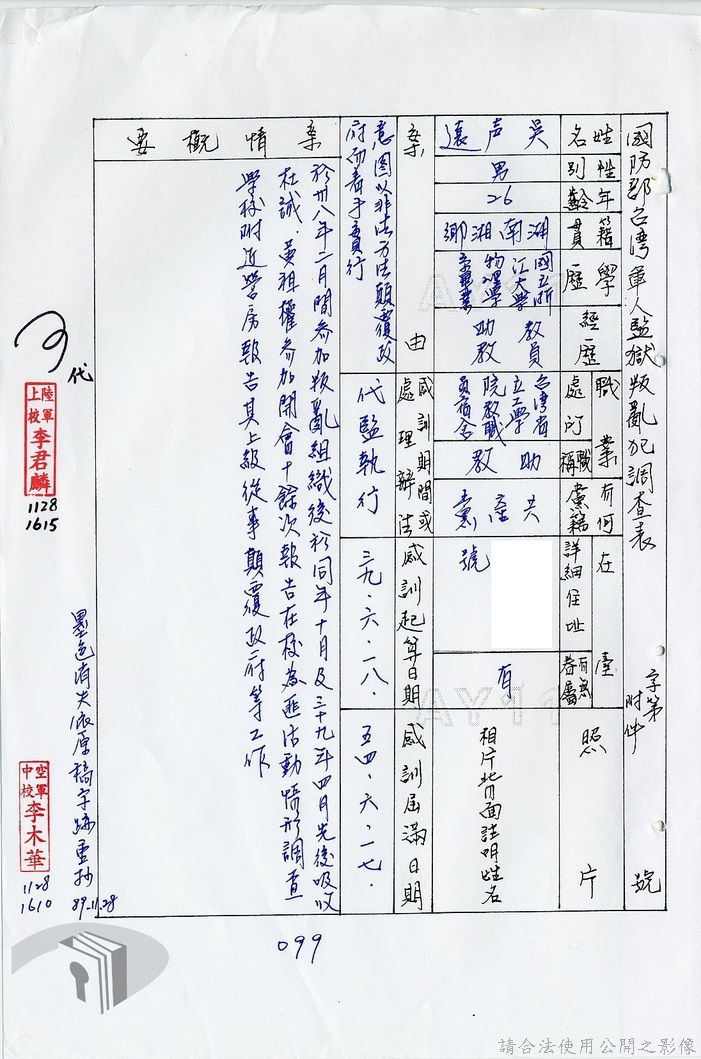 國防部台灣軍人監獄叛亂犯調查表
字第 號
附件
姓名
吳声遠
性別
男
年齡
26
籍貫
湖南湘鄉
學歷
國立浙江大學物理學系畢業
經歷
教員
助教
職業
處所
台灣省立工學院教職員宿舍
職稱
助教
有何黨籍
共產黨
在臺
詳細住址
號
有無眷屬
有
照片
相片背面註明姓名
案由
意图以非法方法顛覆政府而着手實行
感訓期間或處理辦法
代監執行
感訓起算日期
三九.六.一八.
感訓屆滿日期
五四.六.一七.
案情概要
於卅八年二月間參加叛亂組織後於同年十月及三十九年四月先後吸收
杜誠.黃祖權參加開會十餘次報告在校為匪活動情形調查
學校附近營房報告其上級從事顛覆政府等工作
代
陸軍上校李君麟
1128
1615
墨色消失依原稿字跡重抄
89.11.28
空軍中校李木華
1128
1610
099
AY11
AY11
請合法使用公開之影像